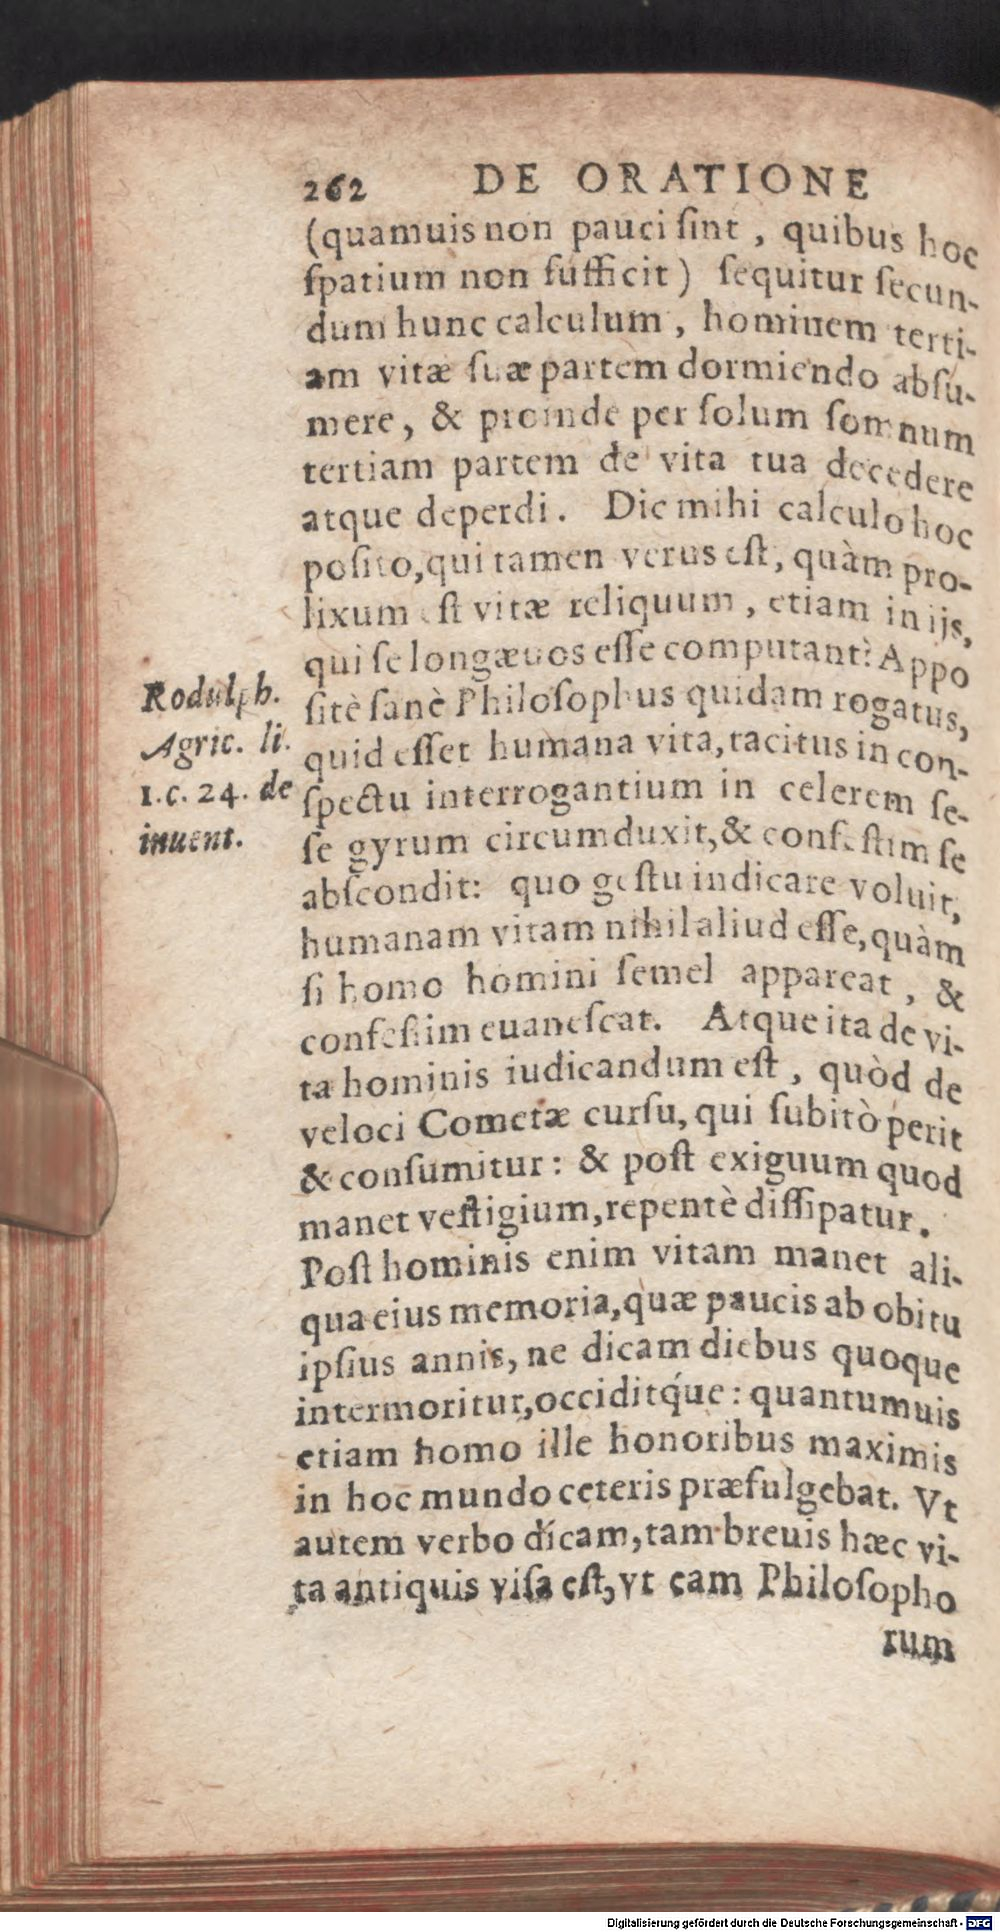 262 DE ORATIONE
(quamuis non pauci ſint, quibus hoc
ſpatium non ſufficit) ſequitur ſecun-
dum hunc calculum, hominem terti-
am vitæ ſuæ partem dormiendo abſu-
mere, & proinde per ſolum ſomnum
tertiam partem de vita tua decedere
atque deperdi. Dic mihi calculo hoc
poſito, qui tamen verus eſt, quàm pro-
lixum eſt vitæ reliquum, etiam in ijs,
qui ſe longæuos eſſe computant? Appo
ſitè ſanè Philoſophus quidam rogatus,
quid eſſet humana vita, tacitus in con-
ſpectu interrogantium in celerem ſe-
ſe gyrum circumduxit, & confeſtim ſe
abſcondit: quo geſtu indicare voluit,
humanam vitam nihil aliud eſſe, quàm
ſi homo homini ſemel appareat, &
confeſtim euaneſcat. Atque ita de vi-
ta hominis iudicandum eſt, quòd de
veloci Cometæ curſu, qui ſubitò perit
& conſumitur: & poſt exiguum quod
manet veſtigium, repentè diſſipatur.
Poſt hominis enim vitam manet ali-
qua eius memoria, quæ paucis ab obitu
ipſius annis, ne dicam diebus quoque
intermoritur, occiditq́ue: quantumuis
etiam homo ille honoribus maximis
in hoc mundo ceteris præfulgebat. Vt
autem verbo dicam, tam breuis hæc vi-
ta antiquis viſa eſt, vt eam Philoſopho
rum
Rodulph.
Agric. li.
1.c. 24. de
inuent.
Digitalisierung gefördert durch die Deutsche Forschungsgemeinschaft - DFG